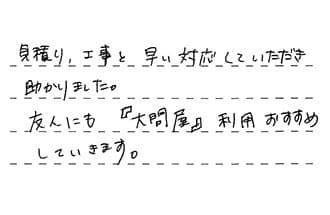 見積り,工事と早い対応していただき
助かりました。
友人にも『大問屋』利用おすすめ
していきます。